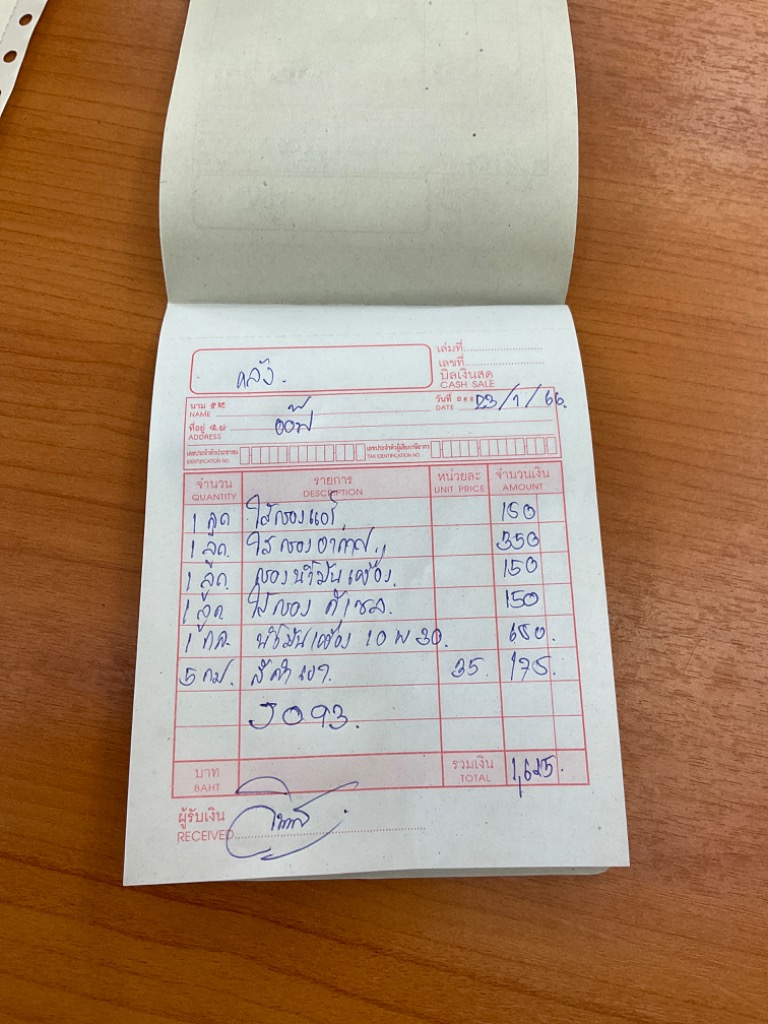 เล่มที่
เลขที่
บิลเงินสด
CASH SALE
คลัง.
นาม
NAME
ออฟ
วันที่ 23/1/66.
DATE
ที่อยู่
ADDRESS
เลขประจำตัวประชาชน
IDENTIFICATION NO.
เลขประจำตัวผู้เสียภาษีอากร
TAX IDENTIFICATION NO.
จำนวน รายการ หน่วยละ จำนวนเงิน
QUANTITY DESCRIPTION UNIT PRICE AMOUNT
1 ลูก ไส้กรองแอร์.
1 ลูก. ไส้กรองอากาศ. 350
1 ลูก. กรองน้ำมันเครื่อง. 150
1 ลูก ไส้กรอง 150
1 น้ำมันเครื่อง 10 W 30.
5 35. 175.
J093.
บาท รวมเงิน
BAHT TOTAL
ผู้รับเงิน
RECEIVED